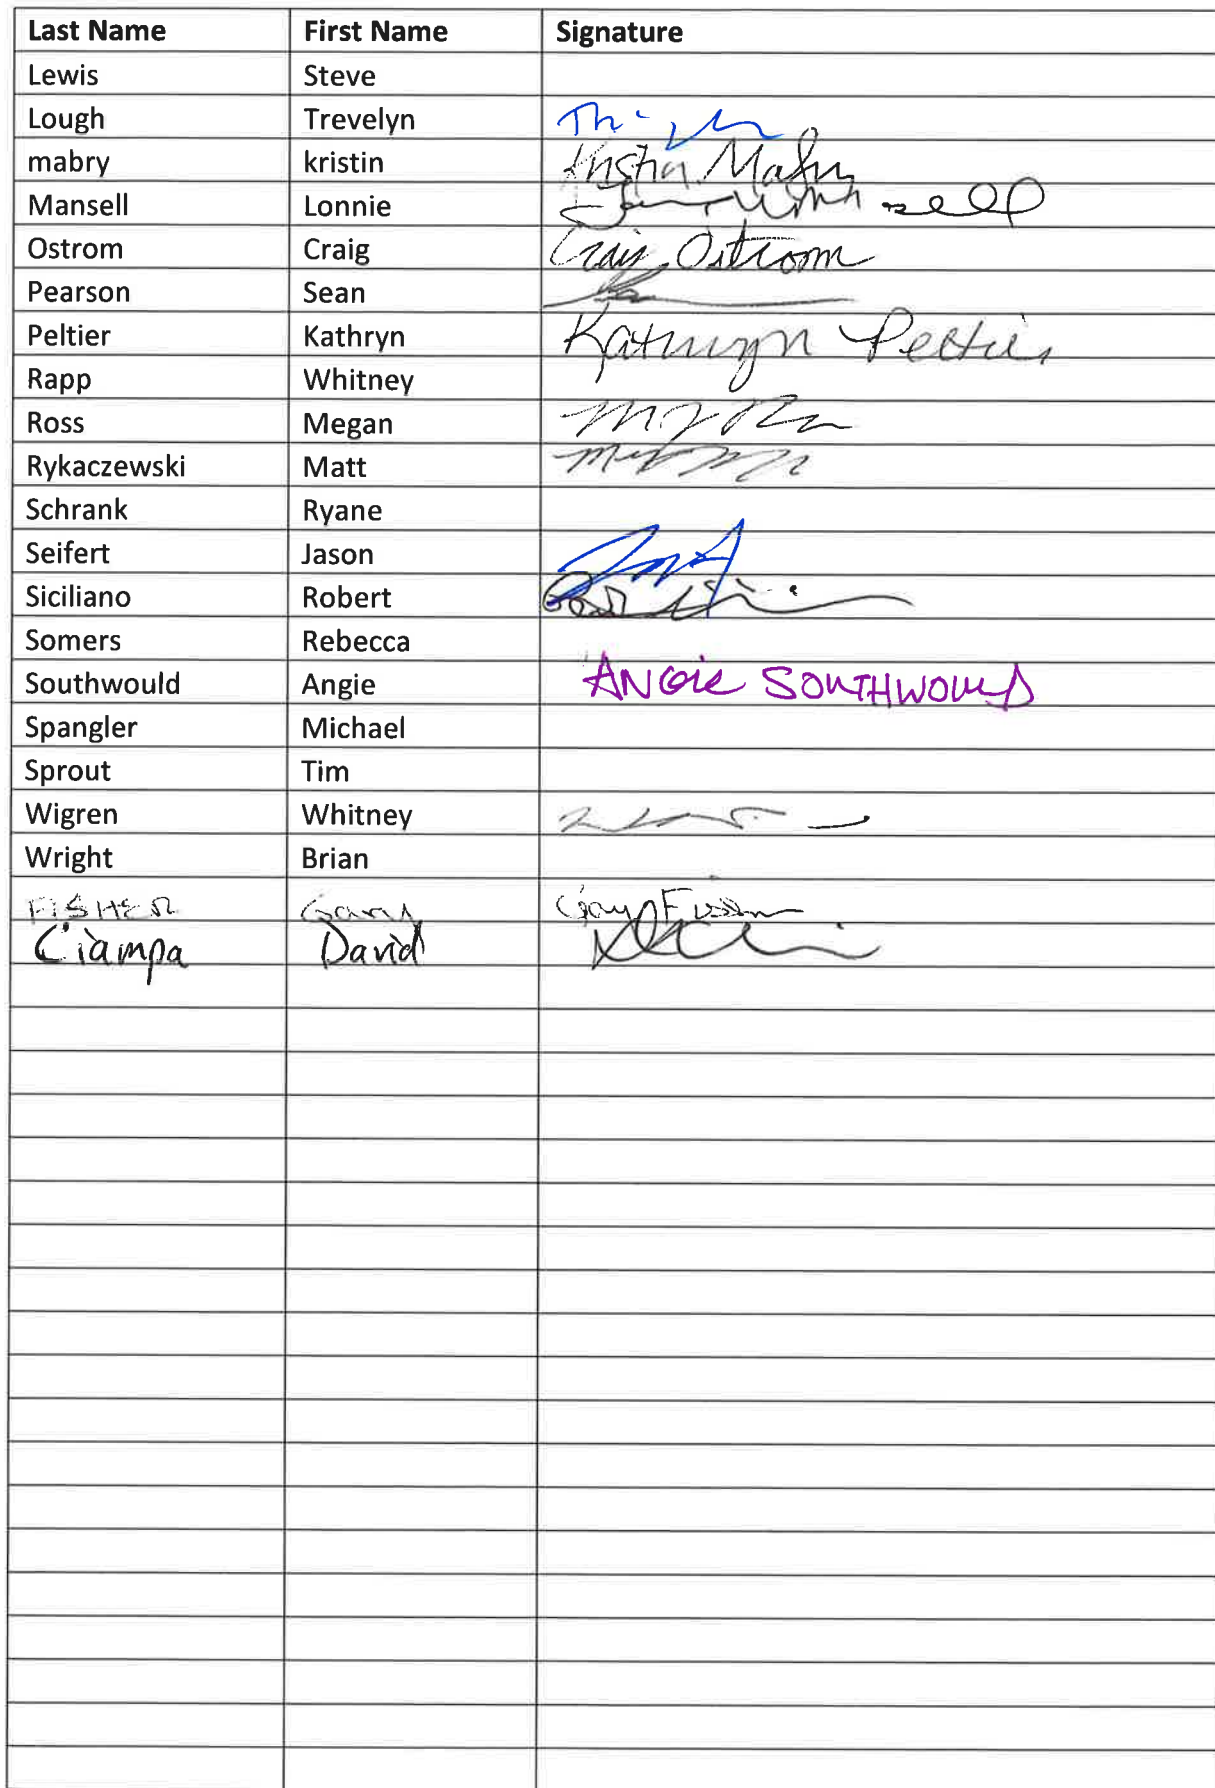 Last Name First Name Signature
Lewis Steve
Lough Trevelyn
mabry kristin Kristin Mabry
Mansell Lonnie
Ostrom Craig Craig Ostrom
Pearson Sean
Peltier Kathryn Kathryn Peltier
Rapp Whitney
Ross Megan
Rykaczewski Matt
Schrank Ryane
Seifert Jason
Siciliano Robert
Somers Rebecca
Southwould Angie ANGIE SOUTHWOULD
Spangler Michael
Sprout Tim
Wigren Whitney
Wright Brian
FISHER Gary Gary Fisher
Ciampa David